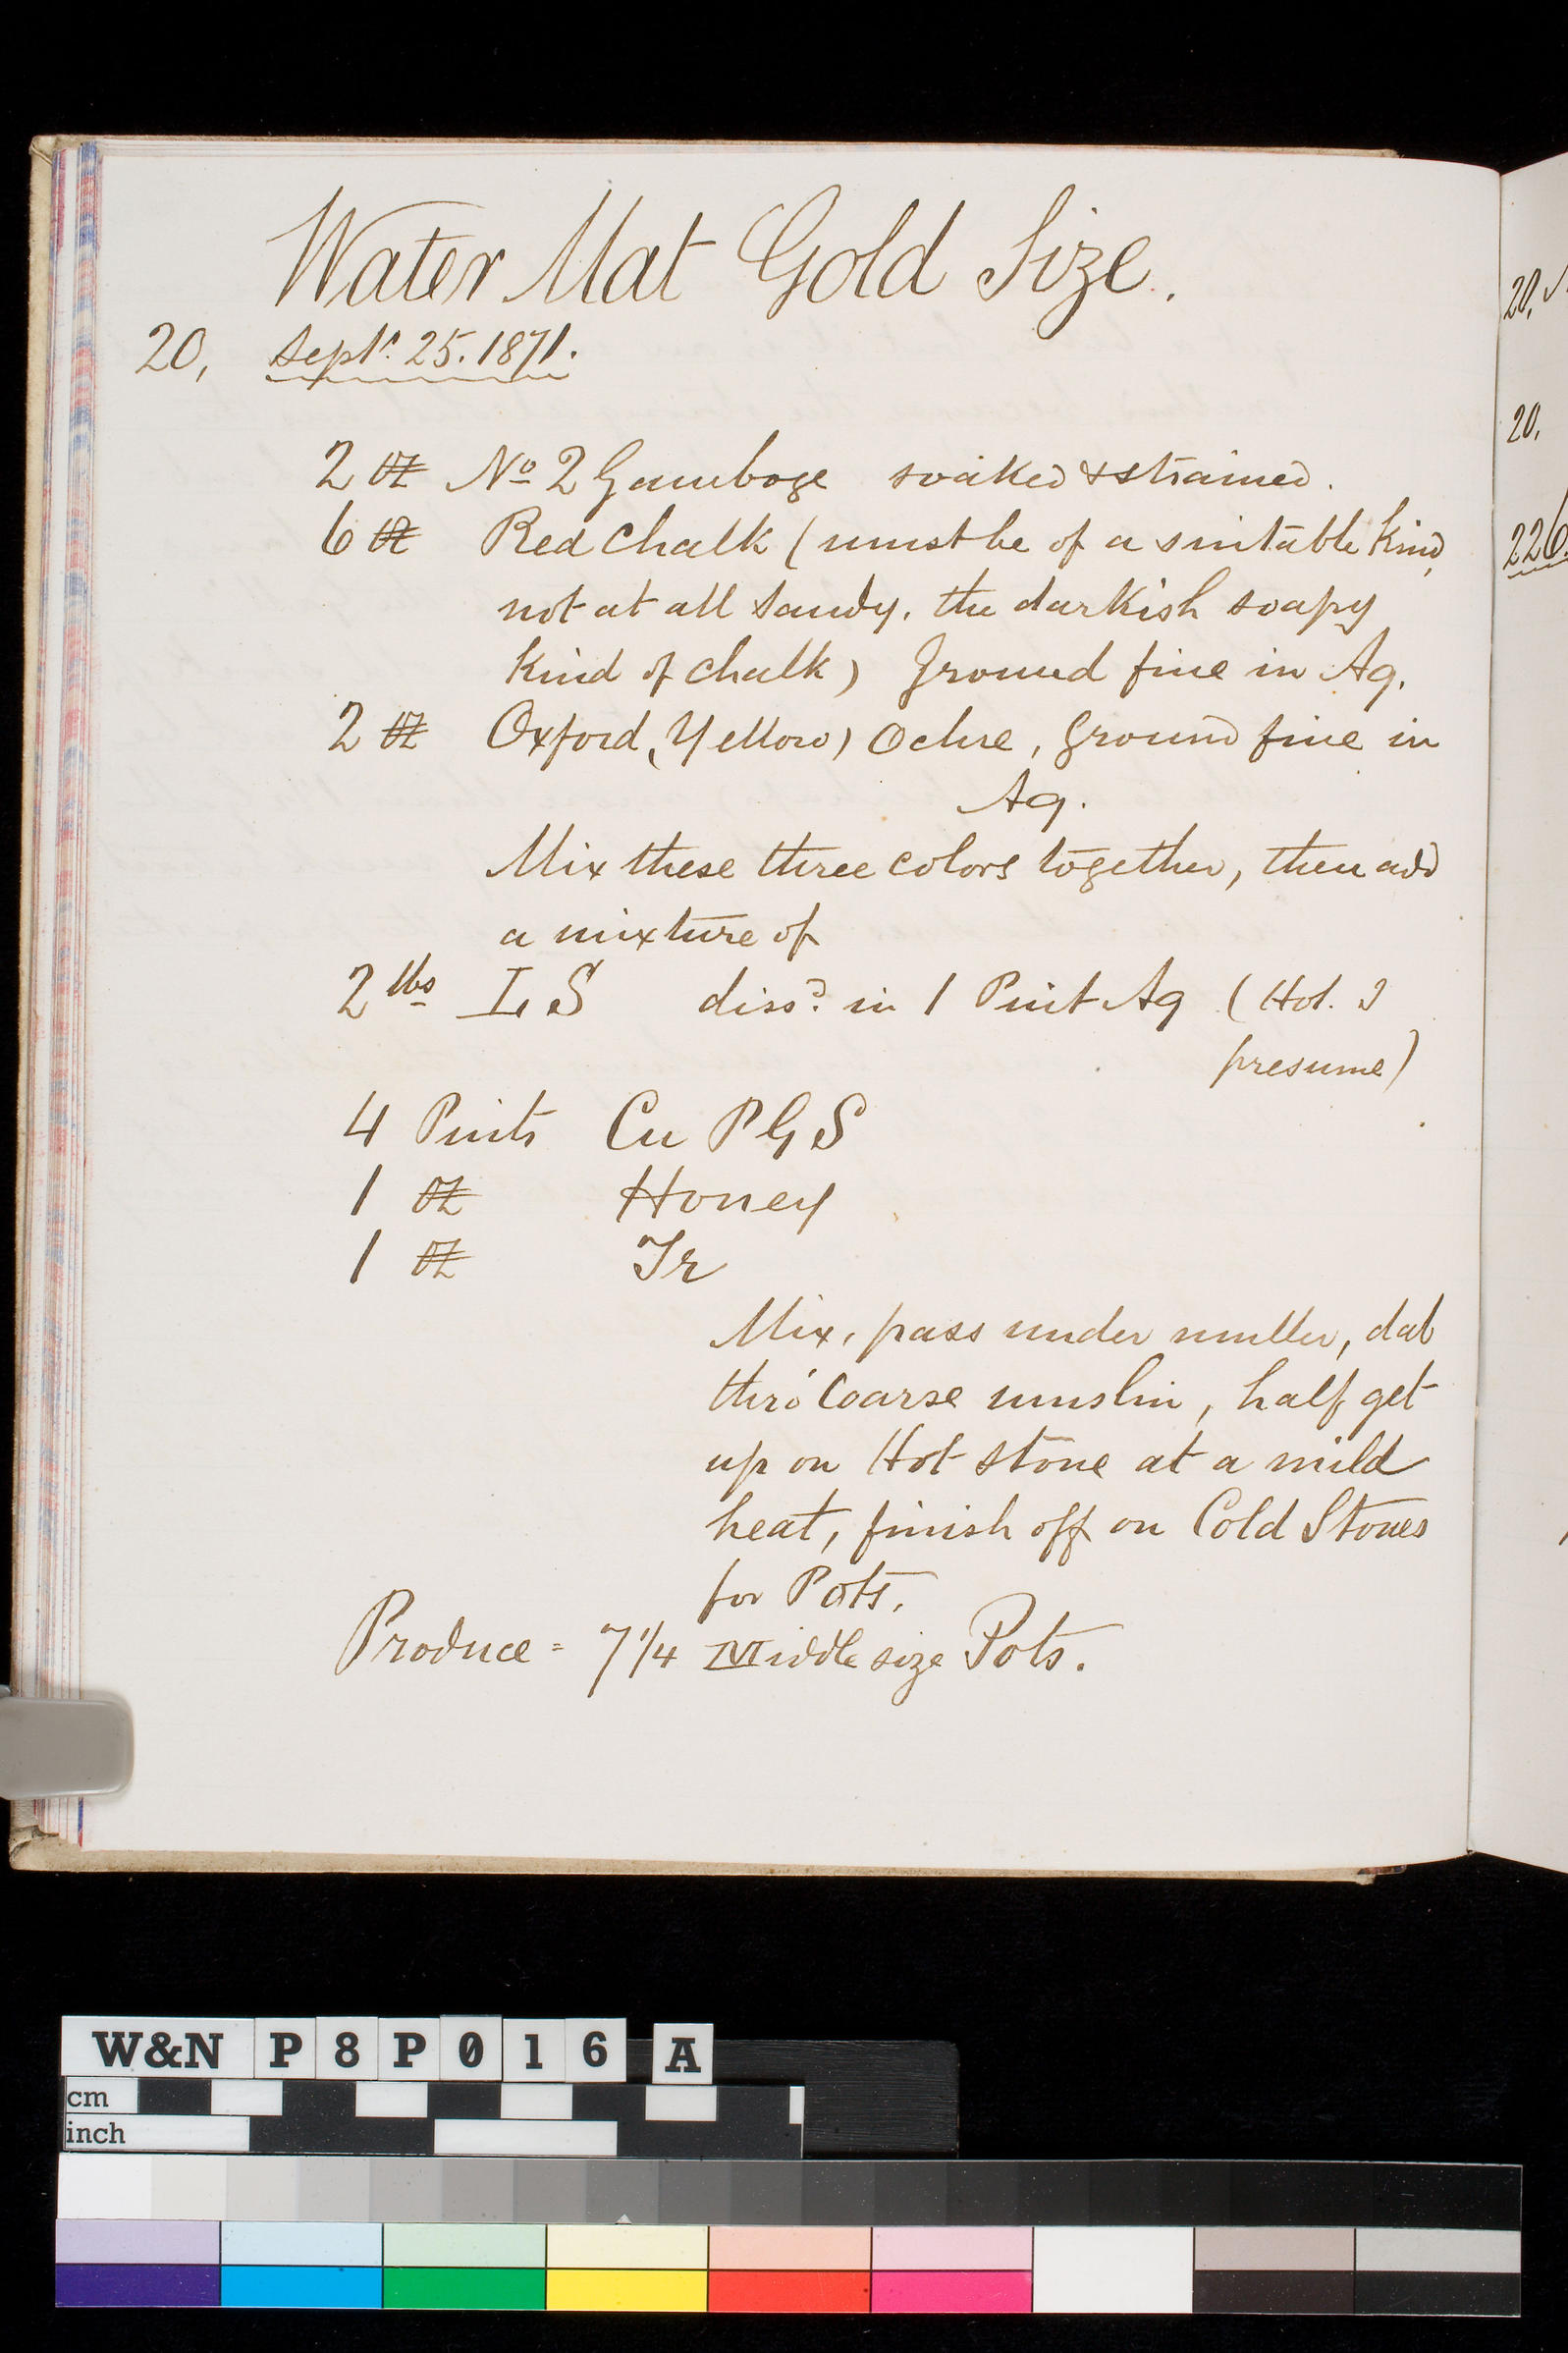 Water Mat Gold Size.
20, Septr. 25. 1871.
2 oz No 2 Gamboge soaked & strained.
6 oz Red Chalk (must be of a suitable kind,
not at all Sandy, the darkish soapy
kind of chalk) Ground fine in Aq.
2 oz Oxford (Yellow) Ochre, Ground fine in
Aq.
Mix these three colors together, then add
a mixture of
2 lbs L S dissd. in 1 Pint Aq (Hot. I
presume)
4 Pints Cu P G S
1 oz Honey
1 oz Tr
Mix, pass under muller, dab
thro' Coarse muslin, half get
up on Hot stone at a mild
heat, finish off on Cold Stones
for Pots.
Produce = 7 1/4 Middle size Pots.
20,
20,
226
W&N P8P016 A
cm
inch